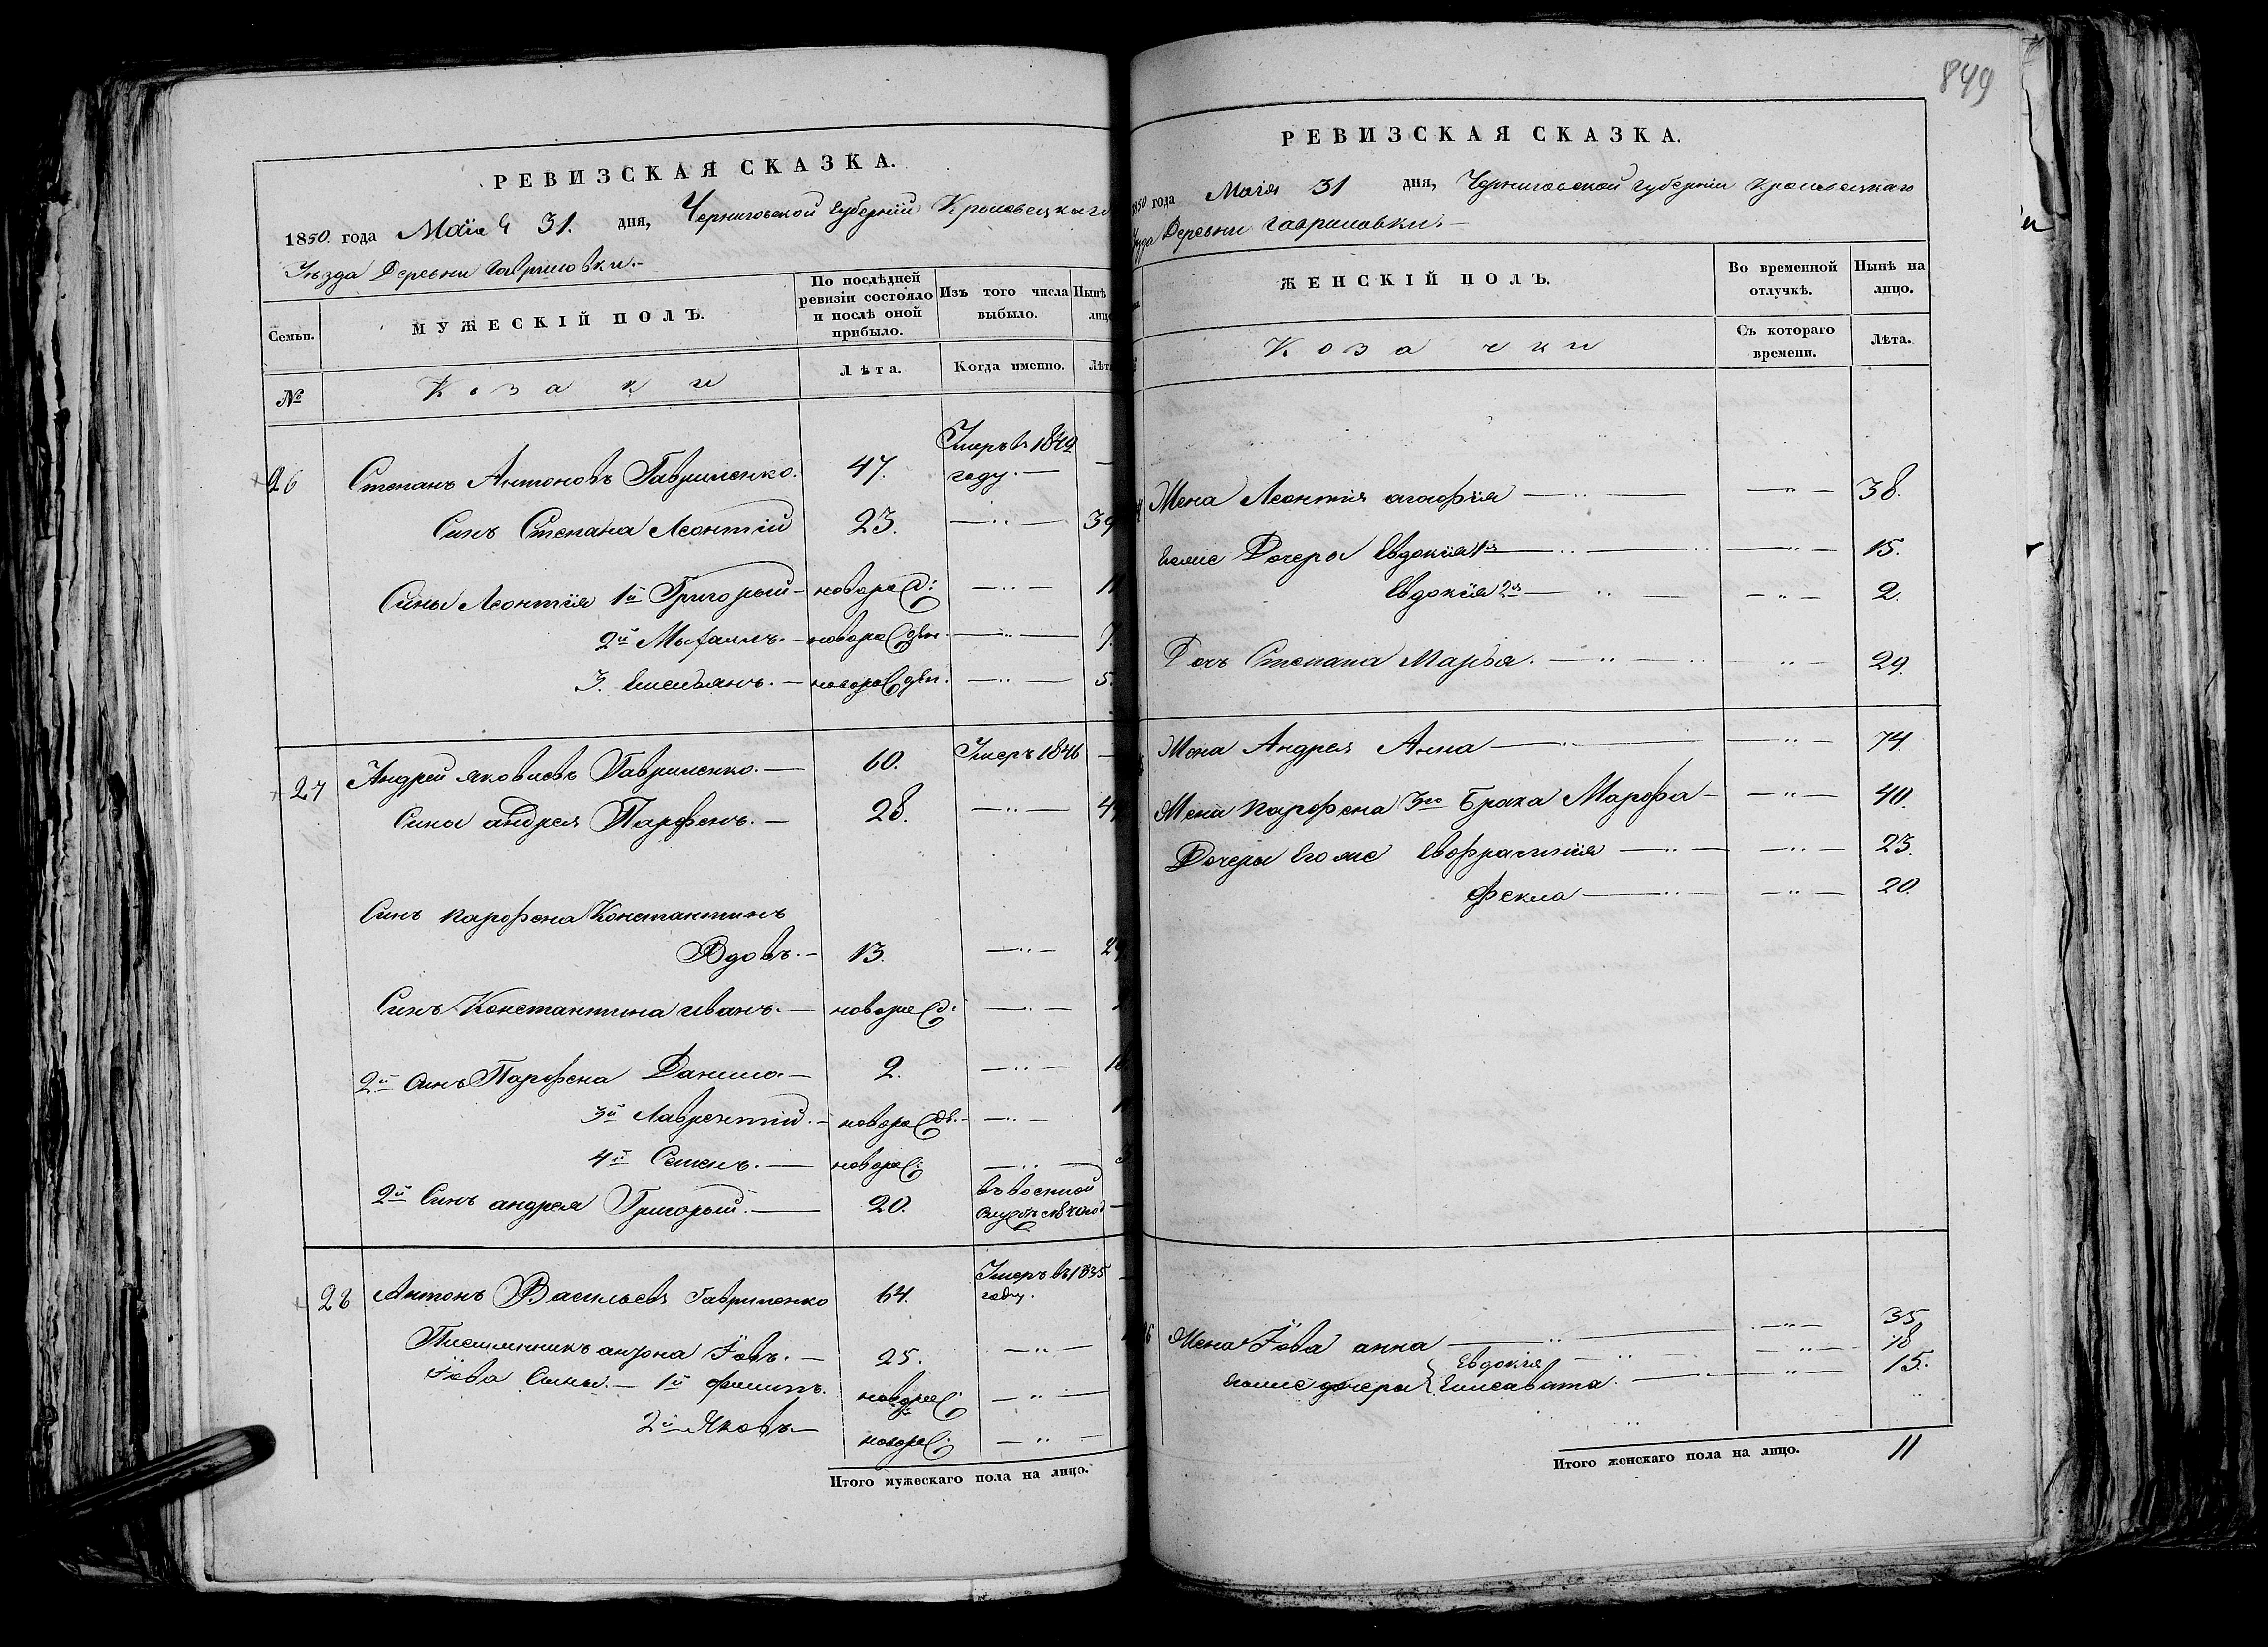 849
РЕВИЗСКАЯ СКАЗКА.
1850. года Маiя 31. дня, Черниговской Губернiи Кролевецкаго
Уѣзда Деревни Гавриловки.-
Семьи.
МУЖЕСКІЙ ПОЛЪ.
По послѣдней ревизіи состояло и послѣ оной прибыло.
Изъ того числа выбыло.
Нынѣ
лицо
№
Козаки
Лѣта.
Когда именно.
Лѣт
26 Степанъ Антоновъ Гавриленко. 47. Умеръ въ 1849 году. —
Синъ Степана Леонтiй 23. — 39
Сины Леонтiя 1й Григорый – новорожд: — 11
2й Мыхаилъ. – новорожден. — 7.
3. Емельянъ. – новорожден. — 5.
27 Андрей Яковлевъ Гавриленко. — 60. Умеръ 1846 —
Сины андрея Парфенъ. — 28. — 44
Синъ парфена Константинъ
Вдовъ. – 13. — 29
Синъ Константина иванъ. — новорожд: —
2й синъ Парфена Данило. — 2. — 18
3й Лаврентiй. – новорожд. —
4й Семенъ. — новорож: —
2й Синъ андрея Григорый. — 20. въ военной
28 Антонъ Васильевъ Гавриленко 64. Умеръ въ 1835 году.
антона Iовъ. – 25. —
Iова Сины. – 1й филипъ. новорож: —
2й Яковъ — новорож: —
Итого мужескаго пола на лицо.
РЕВИЗСКАЯ СКАЗКА.
1850 года Маiя 31 дня, Черниговской губернiи Кролевецкаго
Уѣзда Деревни Гавриловки. –
ЖЕНСКІЙ ПОЛЪ.
Во временной отлучкѣ.
Нынѣ на лицо.
Козачки
Съ котораго времени.
Лѣта.
Жена Леонтiя агафiя — 38.
Ихже Дочеры Евдокiя 1я — 15.
Евдокiя 2я — 2.
Дочъ Степана Марья. — 29.
Жена Андрея Анна — 74.
Жена парфена 3го Брака Марфа — 40.
Дочеры Егоже Евфрасинiя — 23.
фекла — 20.
Жена Iова анна — 35
Ихже дочеры Евдокiя — 18
Елисавета. — 15.
Итого женскаго пола на лицо. 11